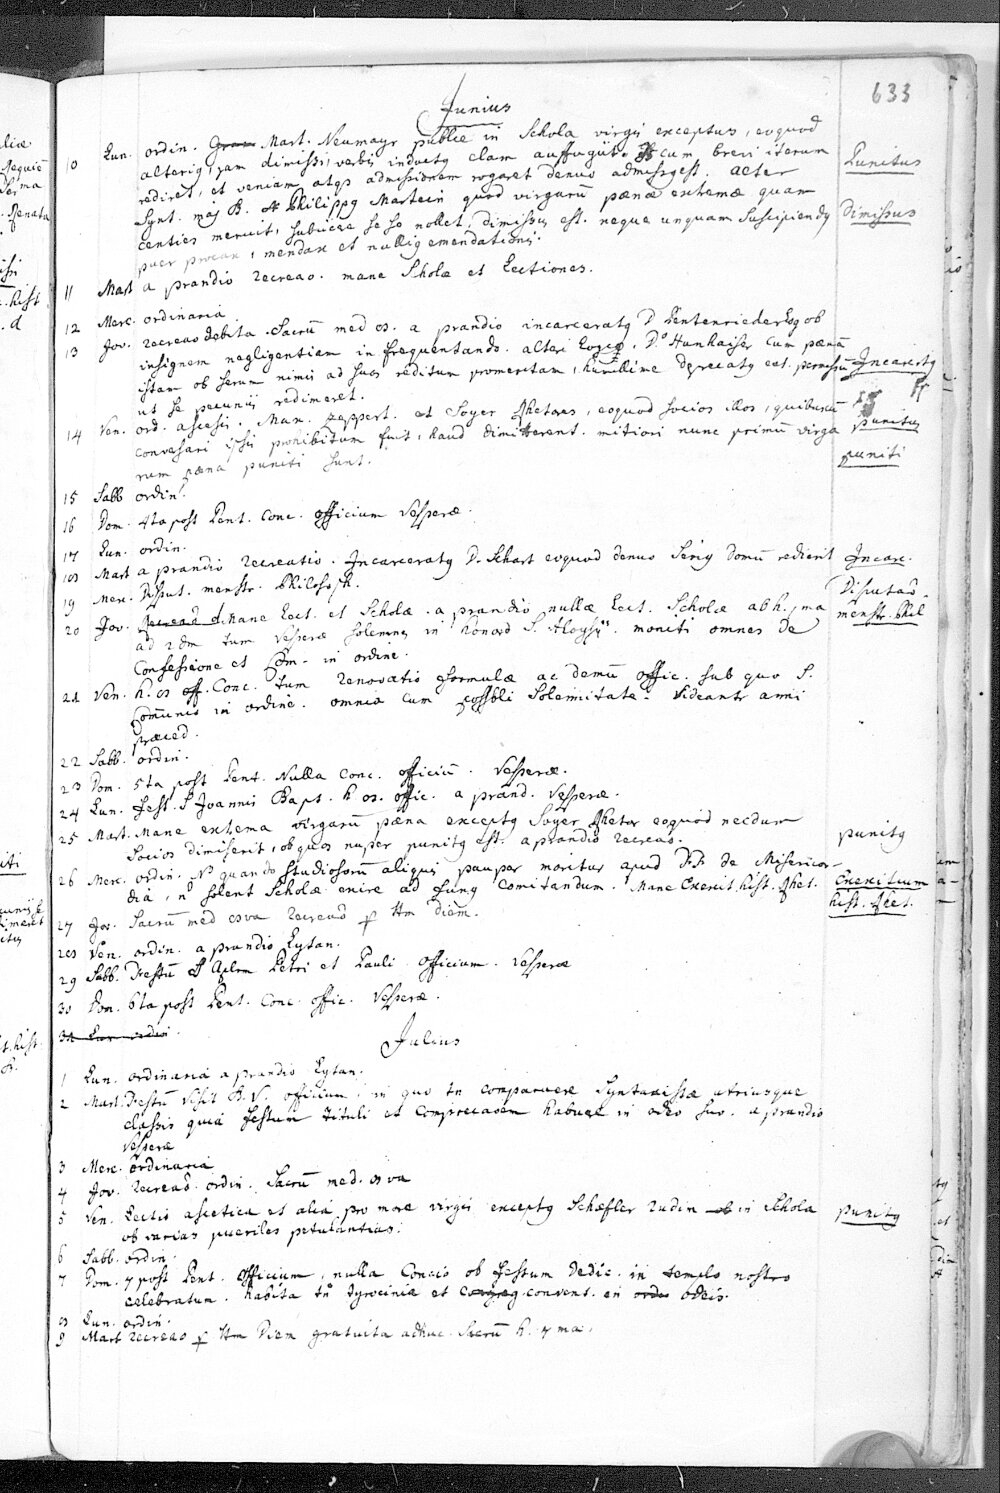 633
Junius
10 Lun. ordin. Mart. Neumayr publice in Schola virgis exceptus, eoquod
alterius, jam dimissi, verbis inductus clam auffugit. cum brevi iterum
rediret, et veniam atqs admissionem rogaret denuo admissus est. alter
Punitus
Synt. maj. B. Philippus Martein quod virgarum pœnæ extemæ quam
centies meruit, subiicere se so nollet, dimissus est. neque unquam suscipiendus
Dimissus
puer procax, mendax et nullius emendationis.
11 Mart. a prandio recreao. mane Scholæ et Lectiones.
12 Merc. ordinaria.
13 Jov. recreao debita. Sacrū med 8. a prandio incarceratus D. Pentenrieder Log ob
insignem negligentiam in frequentando. alter Logcs. D. Hunhaiser cum pænā
istam ob serum nimis ad suos reditum promeritam, humillime deprecatus est. permissū
Incarcertg
ut se pecuniis redimeret.
14 Ven. ord. ascesis. Max. Zeppert. et Soyer Rhetores, eoquod socios illos, quibuscū
conversari ipsis prohibitum fuit, haud dimitterent. mitiori nunc primū virga
punitus
rum pæna puniti sunt.
puniti
15 Sabb ordin.
16 Dom. 4ta post Pent. Conc. officium Vesperæ.
17 Lun. ordin.
18 Mart a prandio recreatio. Incarceratus D. Schart eoquod denuo serius domū redierit
Incarc.
19 Merc. Disput. menstr. Philosoph.
Disputao.
menstr. Phil
20 Jov. Mane Lect. et Scholæ. a prandio nullæ Lect. Scholæ ab h. 1ma
ad 2dm tum Vesperæ solemnes in honorē S. Aloysii. moniti omnes de
Confessione et Com. in ordine.
21 Ven. h. 8 off. Conc. tum renovatio formulæ ac demū offic. sub quo S.
Communio in ordine. omnia cum possbli Solemnitate. Videantr anni
præced.
22 Sabb. ordin.
23 Dom. 5ta post Pent. Nulla Conc. officiū. Vesperæ.
24 Lun. Fest. S Joannis Bapt. h 8. offic. a prand. Vesperæ.
25 Mart. Mane extema virgarū pæna exceptus Soyer Rhetor eoquod necdum
Socios dimiserit, ob quos nuper punitus est. a prandio recreao.
punitg
26 Merc. ordin. NB quando studiosorū aliquis pauper moritur apud FF. de Misericor-
dia, n̄ solent Scholæ exire ad funus comitandum. Mane Exercit. hist. Rhet.
Exercitium
hist. Rhet.
27 Jov. Sacrū med 8va recreaō p ttm diem.
28 Ven. ordin. a prandio Lytan.
29 Sabb. Festū SS Aplrm Petri et Pauli officium. Vesperæ
30 Dom. 6ta post Pent. Conc. offic. Vesperæ.
31 Lun ordin.
Julius
1 Lun. ordinaria a prandio Lytan.
2 Mart. Festū Visit. B. V. officium. in quo tn comparuere Syntaxistæ utriusque
classis quia Festum tituli et Comprecaoem habuere in odeo suo. a prandio
Vesperæ
3 Merc. ordinaria
4 Jov. recreaō. ordin. Sacrū med. 8va
5 Ven. Lectio ascetica et alia pro more virgis exceptus Schæfler Rudim in Schola
ob varias pueriles petulantias.
punitg
6 Sabb. ordin.
7 Dom. 7 post Pent. officium, nulla Concio ob Festum Dedic. in templo nostro
celebratum. habita tn Tyrocinia et convent. in odeis.
8 Lun. ordin.
9 Mart recreao p ttm Diem gratuita adhuc. Sacrū h. 7ma.